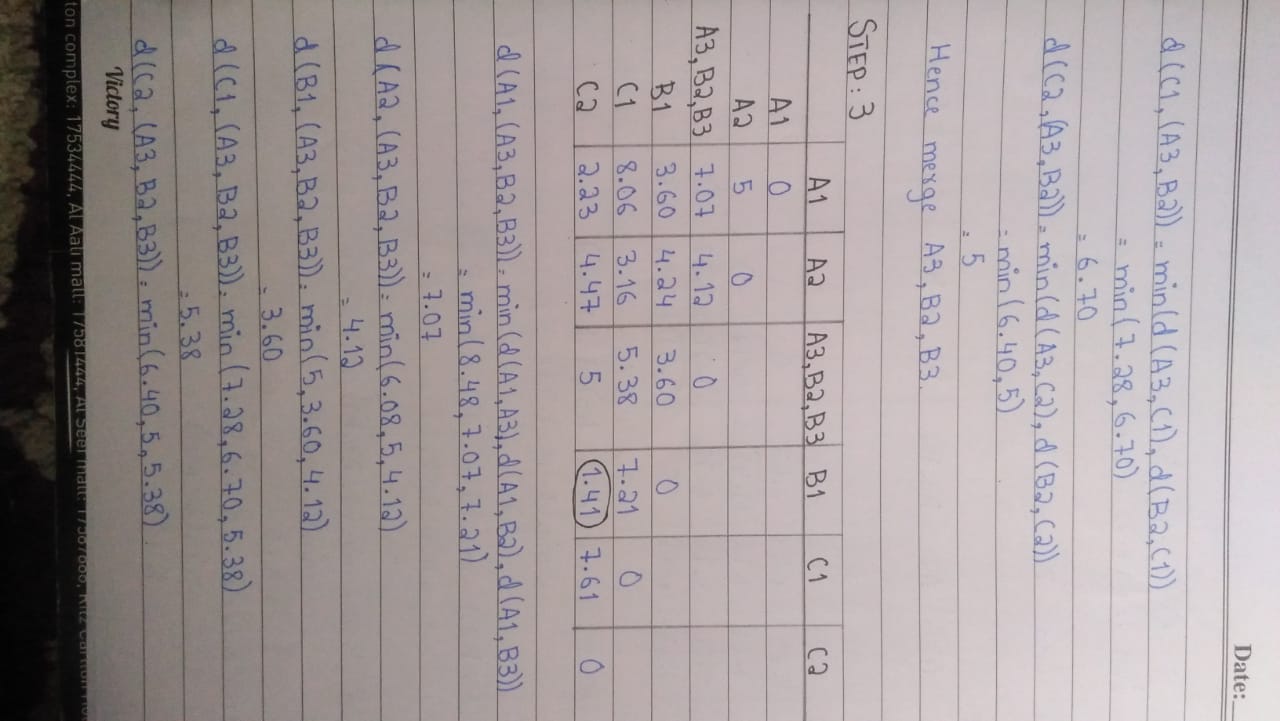 Date:
d(C1, (A3, B2)) = min(d(A3, C1), d(B2, C1))
= min(7.28, 6.70)
= 6.70
d(C2, (A3, B2)) = min(d(A3, C2), d(B2, C2))
= min(6.40, 5)
= 5
Hence merge A3, B2, B3.
STEP: 3
A1 A2 A3, B2, B3 B1 C1 C2
A1 0
A2 5 0
A3, B2, B3 7.07 4.12 0
B1 3.60 4.24 3.60 0
C1 8.06 3.16 5.38 7.21 0
C2 2.23 4.47 5 1.41 7.61 0
d(A1, (A3, B2, B3)) = min(d(A1, A3), d(A1, B2), d(A1, B3))
= min(8.48, 7.07, 7.21)
= 7.07
d(A2, (A3, B2, B3)) = min(6.08, 5, 4.12)
= 4.12
d(B1, (A3, B2, B3)) = min(5, 3.60, 4.12)
= 3.60
d(C1, (A3, B2, B3)) = min(7.28, 6.70, 5.38)
= 5.38
d(C2, (A3, B2, B3)) = min(6.40, 5, 5.38)
Victory
ton complex: 17534444, Al Aali mall: 17581444, Al Seef mall: